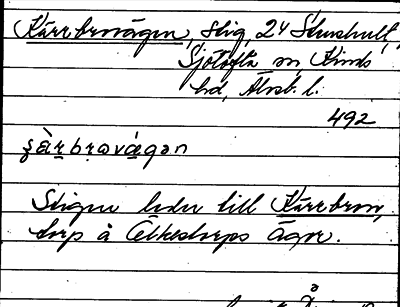 Kärrbrovägen, stig, 24 Stenshult,
Sjötofta sn, Kinds
hd, Älvsb. l.
492
ʂæ̀r̲br̲ɷvä̲gən
Stigen leder till Kärrbron,
torp å Älkestorps ägor.